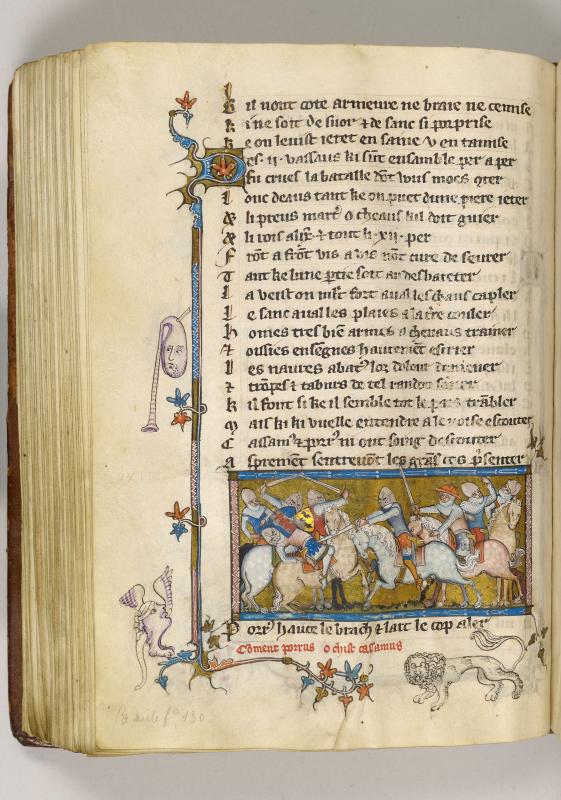 B il uont cote armeure ne braie ne
k i ne soit de suor & de sanc si porprise
k e on leuist ietet en saine v en tamise
D es .ij. vassaus ki sūt ensamble per a per
fu crues la bataille dōt vous moes
l onc deaus tant ke on puet dune piere ieter
& li preus o cheaus kil doit guier
& li rois & tout li .xij. per
F rōt a frōt vis a vis nōt cure de seurer
T ant ke lune ptie soit au desbareter
l a veist on fort aual les chans capler
l e sanc aual les plaies a la tre couler
h omes tres biē armes o cheuaus trainer
& oissies enseignes hautemēt escrier
l es naures abat lor dolour demener
& trōpes & taburs de tel randon soner
k il font si ke il semble tot le pais trābler
M ais ki ki vuelle entendre a le noise escouter
C assam & porr ni ont soing descouter
A spremēt sentreuōt les grās cos psenter
P orr hauce le brach & lait le cop aler
Cōment porrus ochist casamus
La suite fo 130